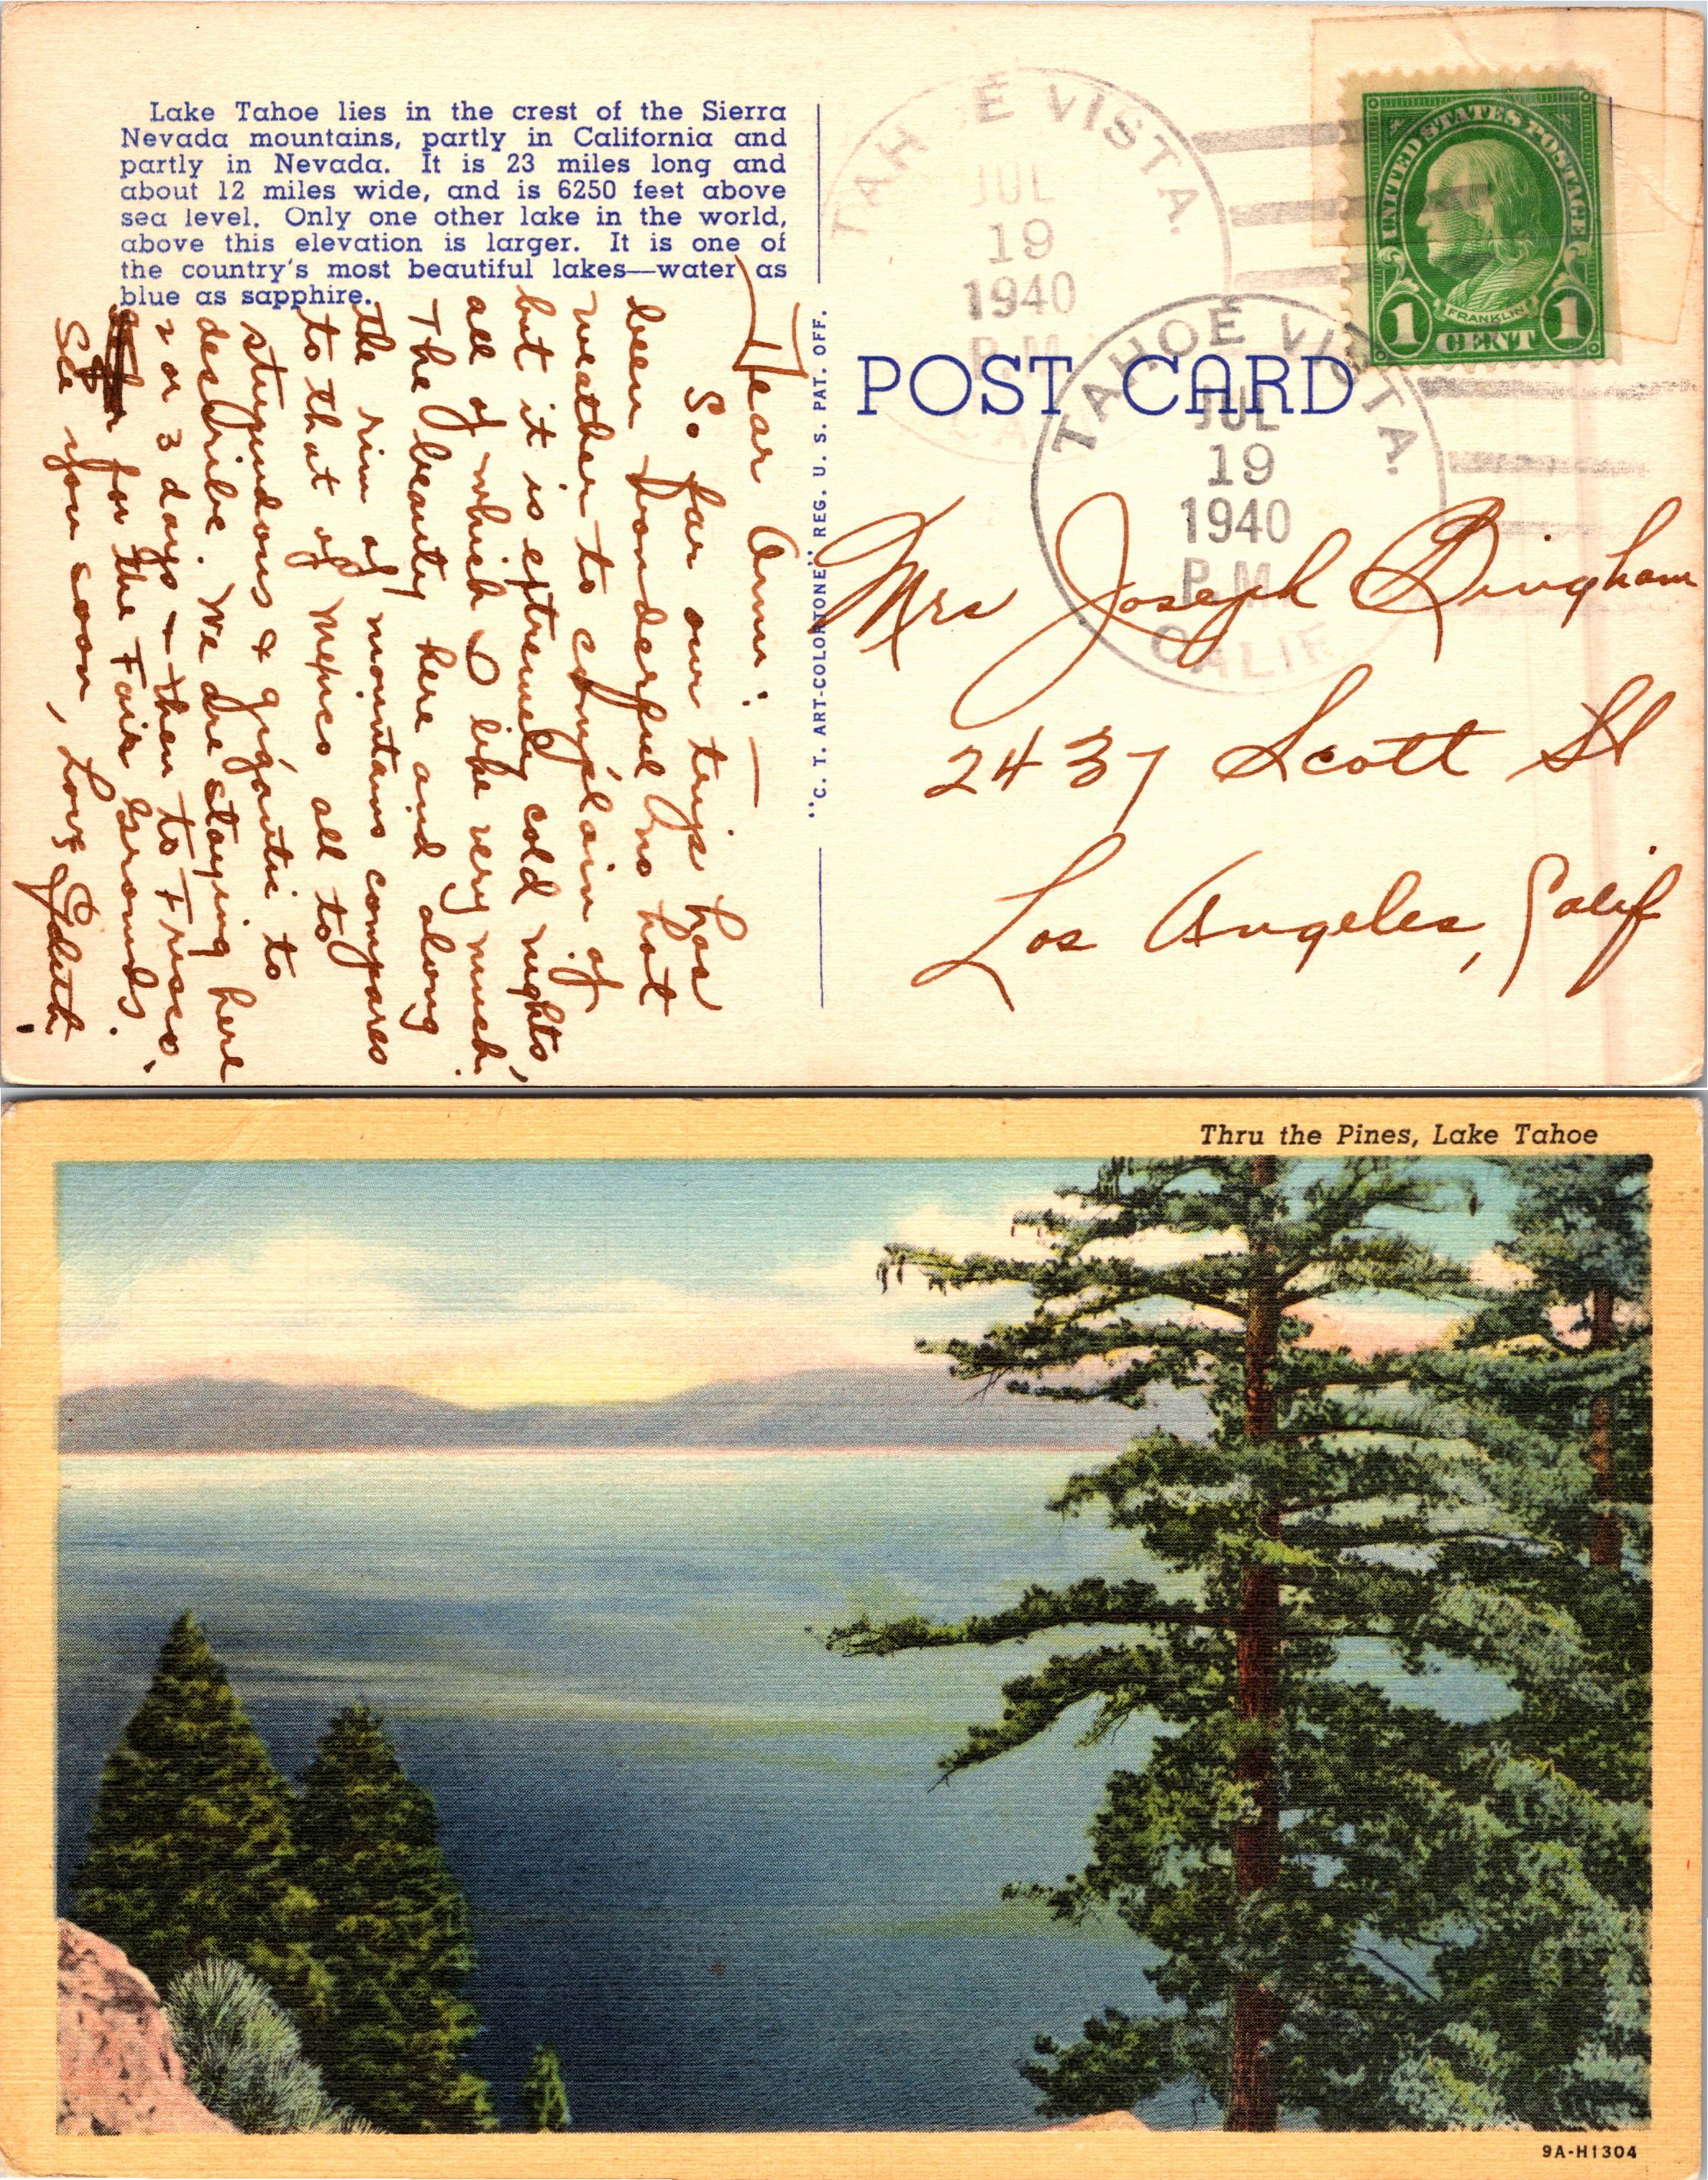 Lake Tahoe lies in the crest of the Sierra
Nevada mountains, partly in California and
partly in Nevada. It is 23 miles long and
about 12 miles wide, and is 6250 feet above
sea level. Only one other lake in the world,
above this elevation is larger. It is one of
the country's most beautiful lakes—water as
blue as sapphire.
Dear Ann: —
So far our trip has
been wonderful no hot
weather to complain of
but it is extremely cold nights,
all of which I like very much.
The beauty here and along
the rim of mountains compares
to that of Mexico all to
stupendous & gigantic to
describe. We are staying here
2 or 3 days & then to Frisco,
for the Fair Grounds.
See you soon, Love Edith.
"C. T. ART-COLORTONE" REG. U. S. PAT. OFF.
TAHOE VISTA.
JUL
19
1940
P.M.
CA
UNITED STATES POSTAGE
FRANKLIN
1 CENT 1
POST CARD
TAHOE VISTA.
JUL
19
1940
P.M.
CALIF.
Mrs Joseph Bingham
2437 Scott St
Los Angeles, Calif
Thru the Pines, Lake Tahoe
9A-H1304